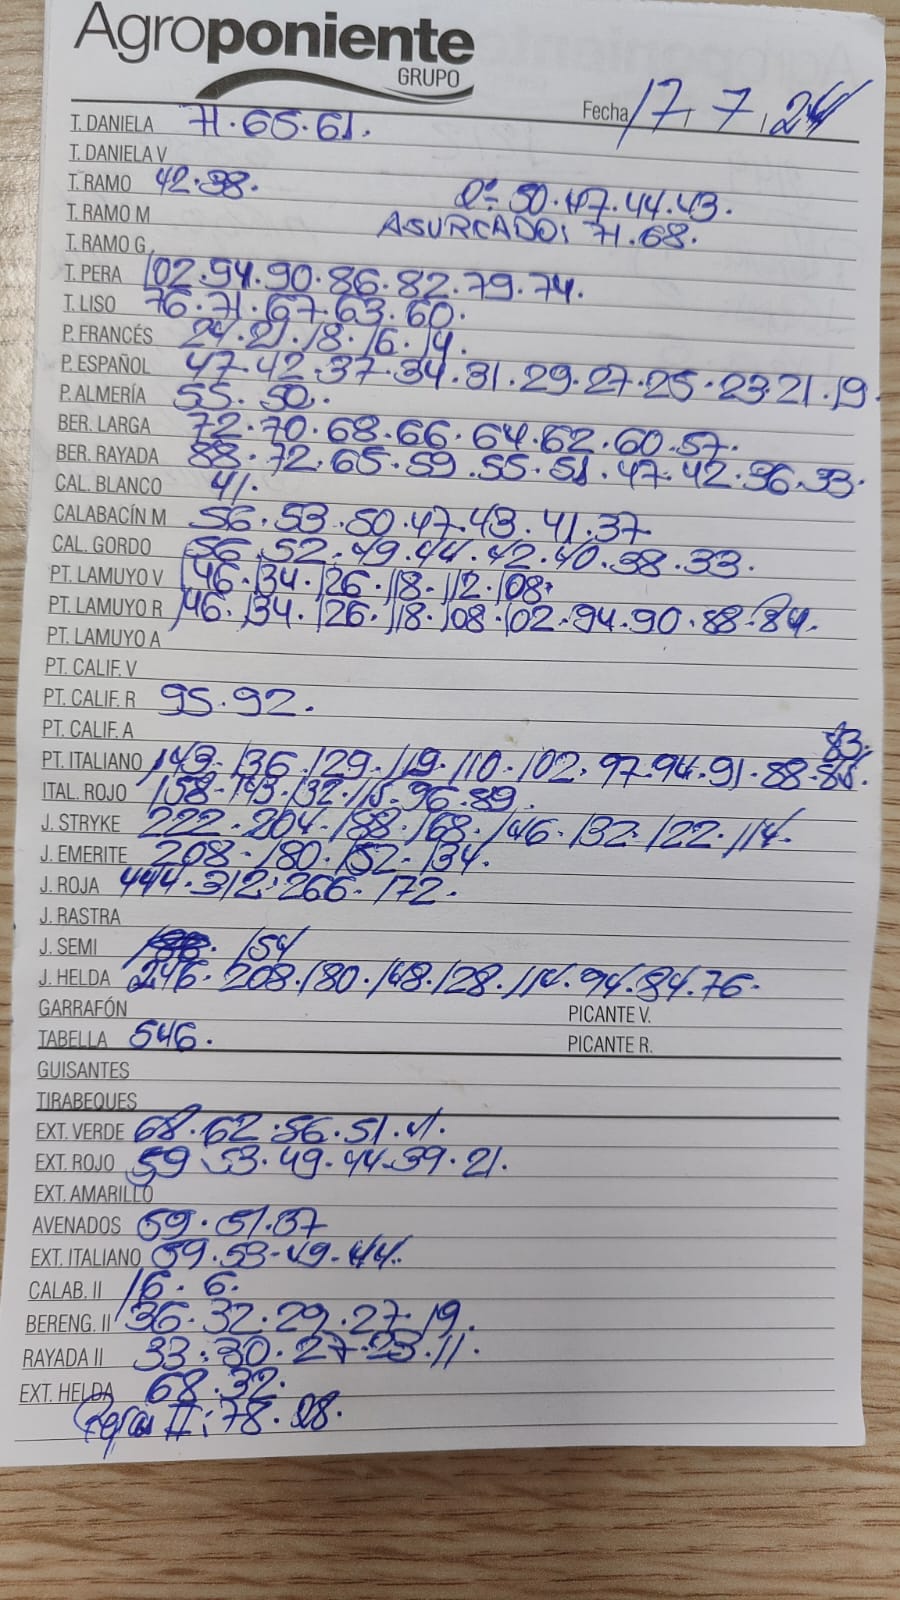 Agroponiente
GRUPO
Fecha 17, 7, 24
T. DANIELA 71.65.61.
T. DANIELA V
T. RAMO 42.38.
2ª: 50.47.44.43.
T. RAMO M
ASURCADO: 71.68.
T. RAMO G
T. PERA 102.94.90.86.82.79.74.
T. LISO 76.71.67.63.60.
P. FRANCÉS 24.21.18.16.14.
P. ESPAÑOL 47.42.37.34.31.29.27.25.23.21.19.
P. ALMERÍA 55.50.
BER. LARGA 72.70.68.66.64.62.60.57.
BER. RAYADA 88.72.65.59.55.51.47.42.36.33.
CAL. BLANCO 41.
CALABACÍN M 56.53.50.47.43.41.37
CAL. GORDO 56.52.49.44.42.40.38.33.
PT. LAMUYO V 146.134.126.118.112.108.
PT. LAMUYO R 146.134.126.118.108.102.94.90.88.84.
PT. LAMUYO A
PT. CALIF. V
PT. CALIF. R 95.92.
PT. CALIF. A
83.
PT. ITALIANO 143.136.129.119.110.102.97.94.91.88.
ITAL. ROJO 158.143.132.115.96.89.
J. STRYKE 222.204.188.168.146.132.122.114.
J. EMERITE 208.180.152.134.
J. ROJA 444.312.266.172.
J. RASTRA
J. SEMI 154
J. HELDA 246.208.180.148.128.114.94.84.76.
GARRAFÓN
PICANTE V.
TABELLA 546.
PICANTE R.
GUISANTES
TIRABEQUES
EXT. VERDE 68.62.56.51.41.
EXT. ROJO 59.53.49.44.39.21.
EXT. AMARILLO
AVENADOS 59.51.37
EXT. ITALIANO 59.53.49.44.
CALAB. II 16.6.
BERENG. II 36.32.29.27.19.
RAYADA II 33.30.27.23.11.
EXT. HELDA 68.32.
II: 78.28.